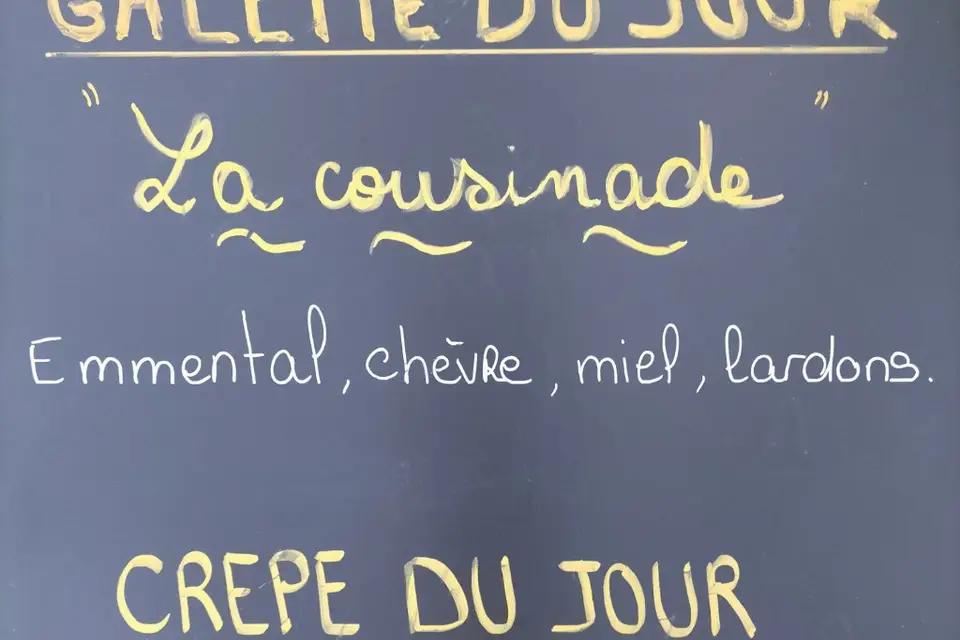 GALETTE DU JOUR
" La cousinade "
Emmental, chèvre, miel, lardons.
CREPE DU JOUR